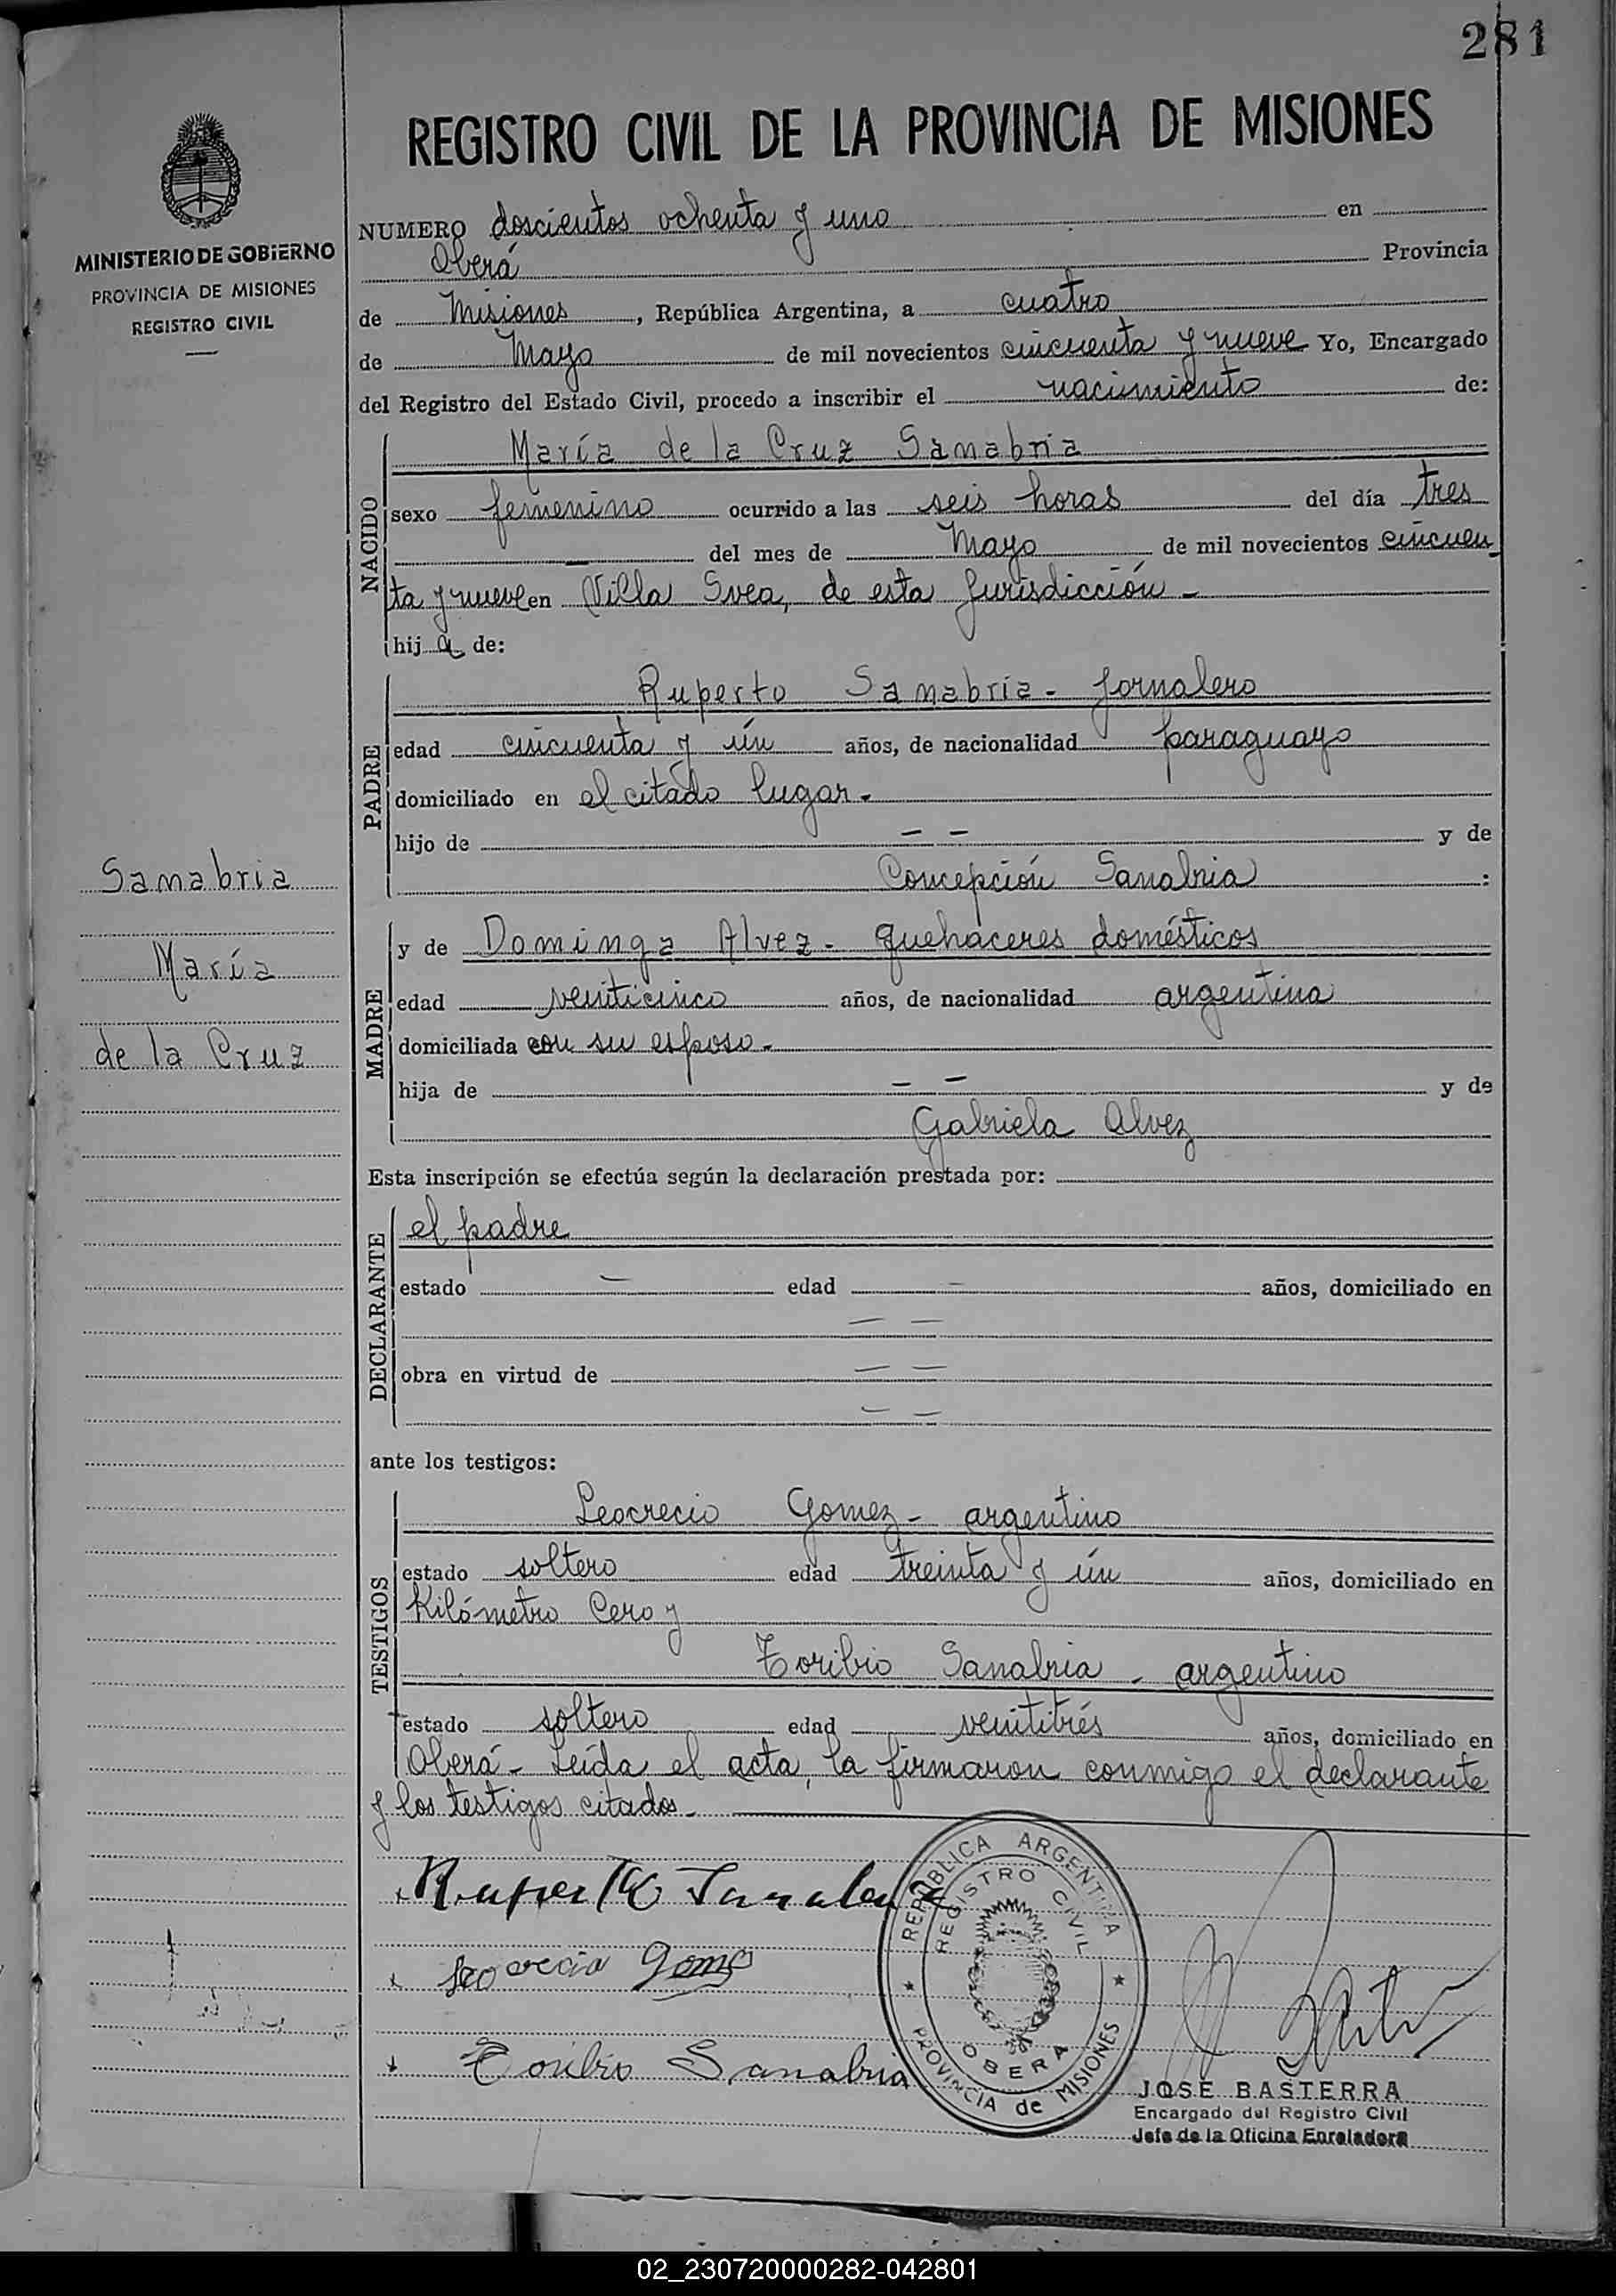 281
REGISTRO CIVIL DE LA PROVINCIA DE MISIONES
MINISTERIO DE GOBIERNO
PROVINCIA DE MISIONES
REGISTRO CIVIL
NUMERO doscientos ochenta y uno en
Oberá Provincia
de Misiones, República Argentina, a cuatro
de Mayo de mil novecientos cincuenta y nueve Yo, Encargado
del Registro del Estado Civil, procedo a inscribir el nacimiento de:
NACIDO
María de la Cruz Sanabria
sexo femenino ocurrido a las seis horas del día tres
del mes de Mayo de mil novecientos cincuen
ta y nueve en Villa Svea, de esta Jurisdicción -
hija de:
PADRE
Ruperto Sanabria - Jornalero
edad cincuenta y ún años, de nacionalidad paraguayo
domiciliado en el citado lugar.
hijo de — — y de
Concepción Sanabria :
Sanabria
María
de la Cruz
MADRE
y de Dominga Alvez - quehaceres domésticos
edad veinticinco años, de nacionalidad argentina
domiciliada con su esposo.
hija de — — y de
Gabriela Alvez
Esta inscripción se efectúa según la declaración prestada por:
DECLARANTE
el padre
estado — edad — años, domiciliado en
— —
obra en virtud de — —
— —
ante los testigos:
TESTIGOS
Leocrecio Gomez - argentino
estado soltero edad treinta y ún años, domiciliado en
Kilómetro Cero y
Toribio Sanabria - argentino
estado soltero edad veintitrés años, domiciliado en
Oberá - Leída el acta, la firmaron conmigo el declarante
y los testigos citados.
Ruperto Sanabria
Leocrecio Gomez
Toribio Sanabria
REPÚBLICA ARGENTINA
REGISTRO CIVIL
OBERA
PROVINCIA de MISIONES
JOSE BASTERRA
Encargado del Registro Civil
Jefe de la Oficina Enroladora
02_230720000282-042801